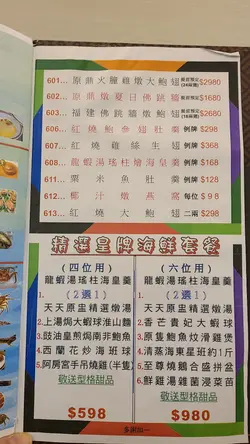 601... 原鼎火朣雞燉大鮑翅 $2980
602... 原鼎燉夏日佛跳牆 $1680
603... 福建佛跳牆燉鮑翅 $2680
606... 紅燒鮑參翅肚羹 例牌 $298
607... 紅燒雞絲生翅 例牌 $368
608... 龍蝦湯瑤柱燴海皇羹 例牌 $168
611... 粟米魚肚羹 例牌 $128
612... 椰汁燉燕窩 每位 $98
613... 紅燒大鮑翅 二兩 $298
精選皇牌海鮮套餐
(四位用)
龍蝦湯瑤柱海皇羹
1. (2選1)
天天原盅精選燉湯
2. 上湯焗大蝦球淮山麵
3. 豉油皇煎焗南非鮑魚
4. 西蘭花炒海班球
5. 阿房宮手吊燒雞(半隻)
敬送型格甜品
$598
(六位用)
龍蝦湯瑤柱海皇羹
1. (2選1)
天天原盅精選燉湯
2. 香芒貴妃大蝦球
3. 原隻鮑魚炆滑雞煲
4. 清蒸海東星班約1斤
5. 至尊燒鵝合盛拼盆
6. 鮮雞湯雜菌浸菜苗
敬送型格甜品
$980
多謝加一